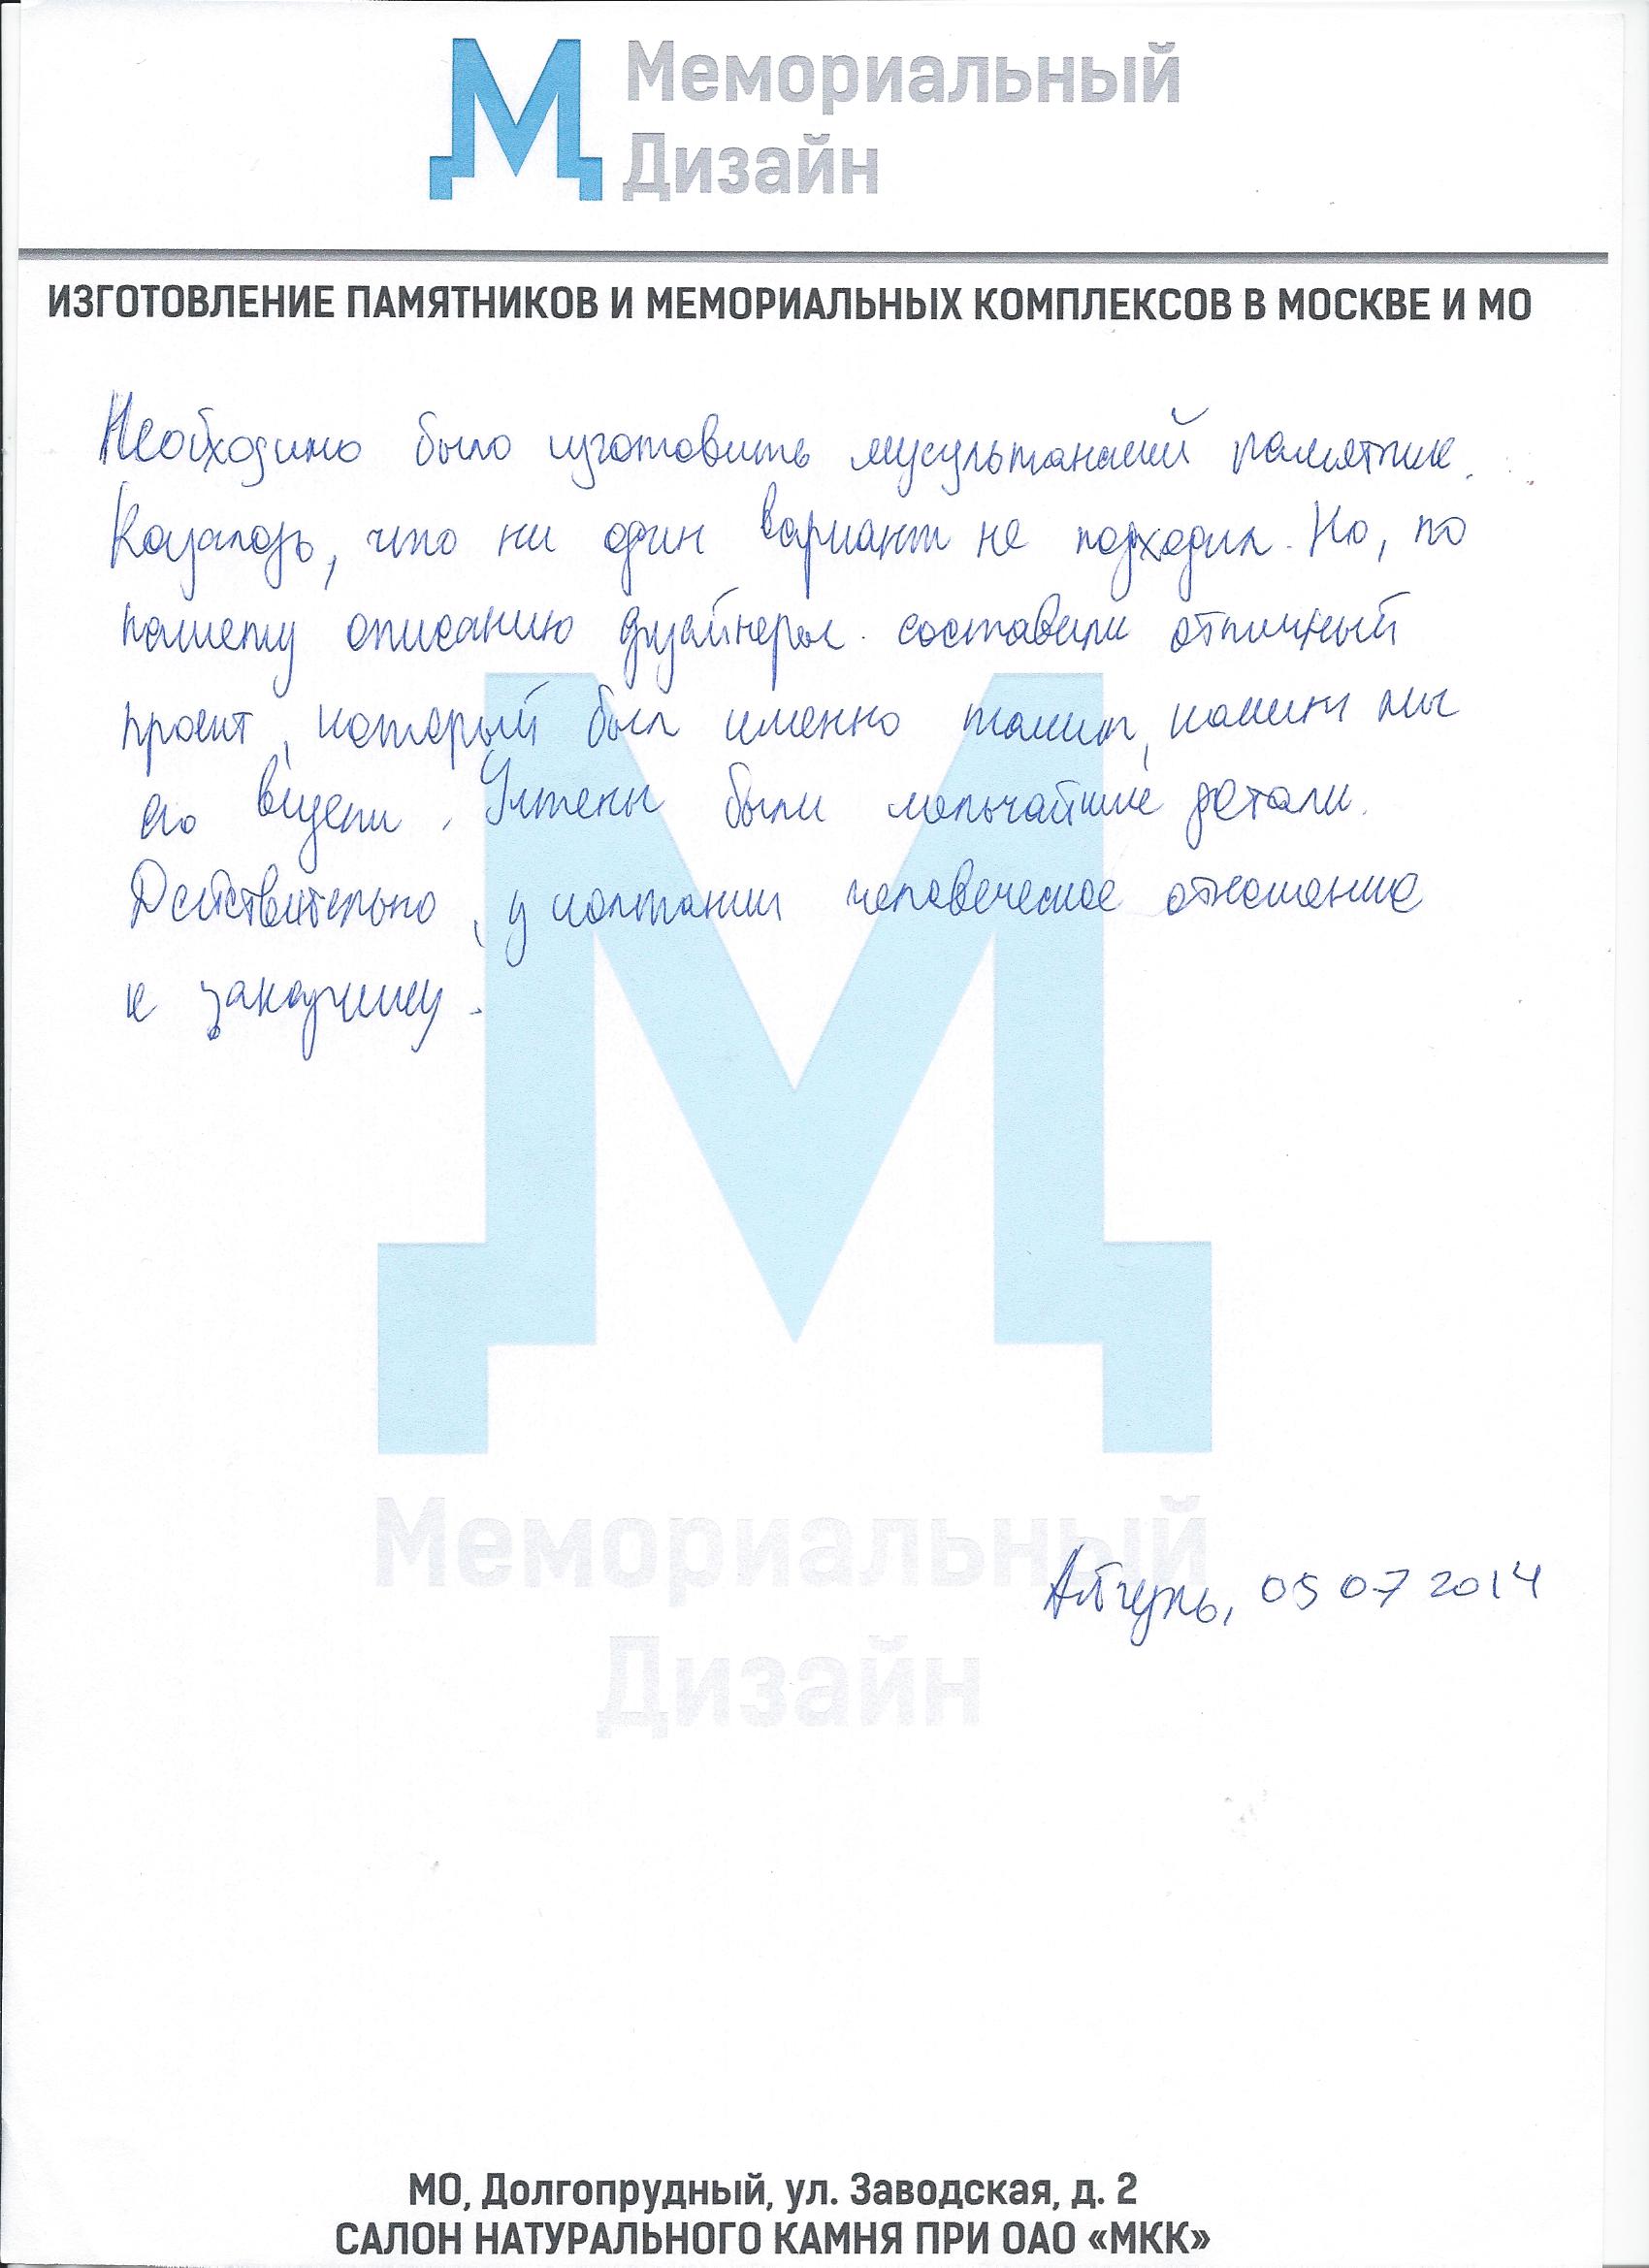 Мемориальный
Дизайн
ИЗГОТОВЛЕНИЕ ПАМЯТНИКОВ И МЕМОРИАЛЬНЫХ КОМПЛЕКСОВ В МОСКВЕ И МО
Необходимо было изготовить мусульманский памятник.
Казалось, что ни один вариант не подходил. Но, по
нашему описанию дизайнеры составили отличный
проект, который был именно таким, каким мы
его видели. Учтены были мельчайшие детали.
Действительно, у компании человеческое отношение
к заказчику.
Мемориальный
Айгуль, 05 07 2014
Дизайн
МО, Долгопрудный, ул. Заводская, д. 2
САЛОН НАТУРАЛЬНОГО КАМНЯ ПРИ ОАО «МКК»